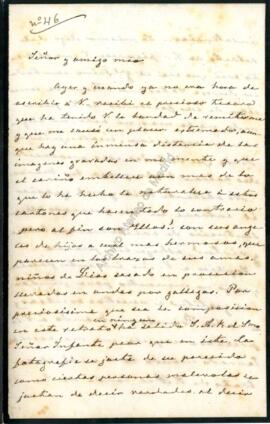 nº 46
Señor y amigo mio
Ayer y cuando ya no era hora de
escribir á V. recibí el precioso
que ha tenido V. la bondad de remitirme
y que me causó un placer estremado, aun
que hay una inmensa distancia de las
imagenes gravadas en mi mente y que
el cariño embellece aun mas de lo
que lo ha hecho la naturaleza á estos
cartones que han lo contrario
pero al fin son Ellas! con sus ange
de hijos a cual mas hermosos, que
parecen en los brazos de sus amas
niños de Dios en procesion
llevados en andas por gallegas. Por
preciosisima que sea la composicion
en este retrato ha salido S.A.R. el Smo
en ninguno
Señor Infante peor que en este. La
fotografia se jacta de su parecido
como ciertas personas malevolas se
jactan de decir verdades al decir